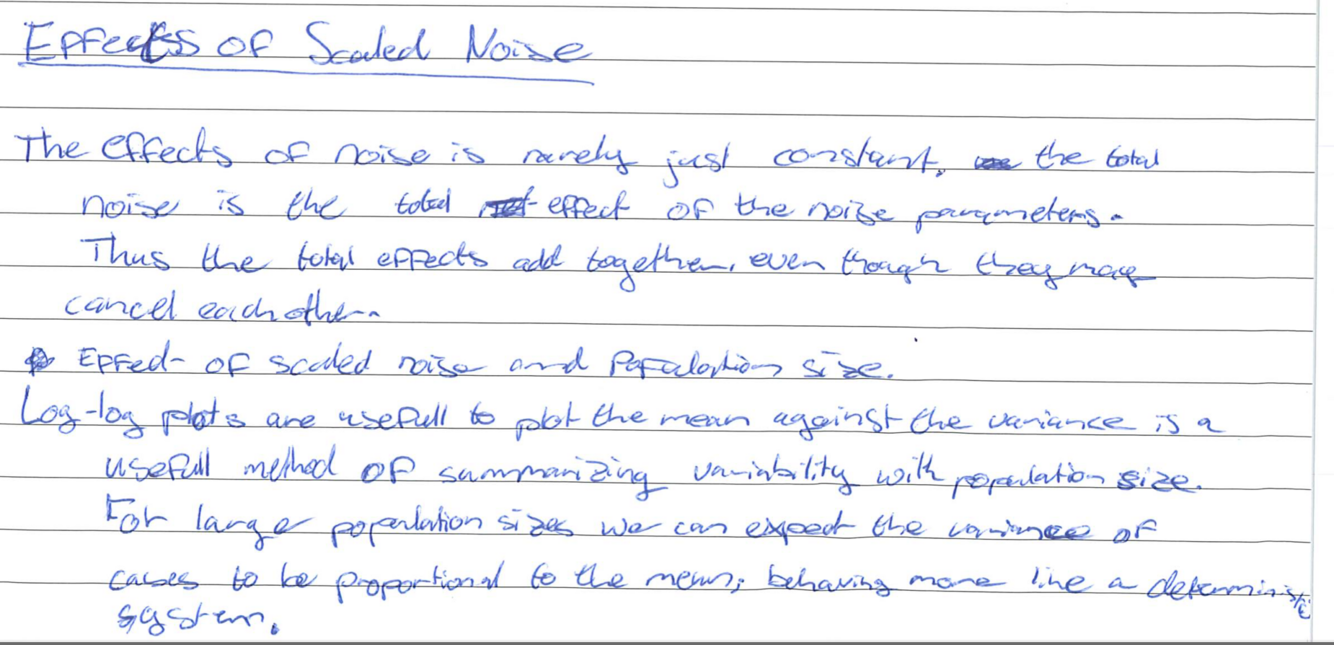 Effects of Scaled Noise
The effects of noise is rarely just constant, the total
noise is the total effect of the noise parameters.
Thus the total effects add together, even though they may
cancel each other.
Effect of scaled noise and Population size.
Log-log plots are usefull to plot the mean against the variance is a
usefull method of summarizing variability with population size.
For larger population sizes we can expect the variance of
cases to be proportional to the mean; behaving more like a deterministic
system.